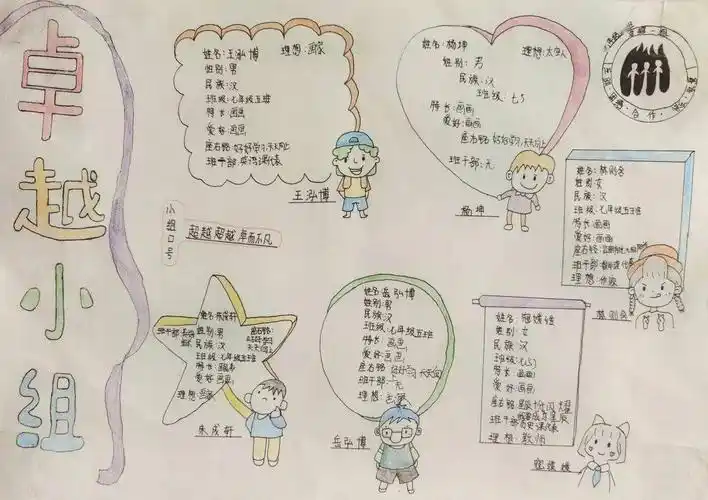 卓越小组
姓名:王泓博 理想:画家
性别:男
民族:汉
班级:七年级五班
特长:画画
爱好:画画
座右铭:好好学习,天天向上
班干部:英语课代表
王泓博
小组口号
超越超越 卓而不凡
姓名:杨坤 理想:太空人
性别:男
民族:汉
班级:七5
特长:画画
爱好:画画
座右铭:好好学习,天天向上
班干部:无
杨坤
合作
性别:女
民族:汉
班级:七年级五班
特长:画画
爱好:画画
座右铭:
班干部:
理想:作家
姓名:朱成轩
性别:男
民族:汉
班级:七年级五班
特长:
爱好:画画
理想:
班干部:
座右铭:
好好学习
天天向上
朱成轩
姓名:岳弘博
性别:男
民族:汉
班级:七年级五班
特长:画画
爱好:画画
座右铭:好好学习 天天向上
班干部:无
理想:
岳弘博
性别:女
民族:汉
班级:七5
特长:画画
爱好:画画
座右铭:
班干部:
理想:教师